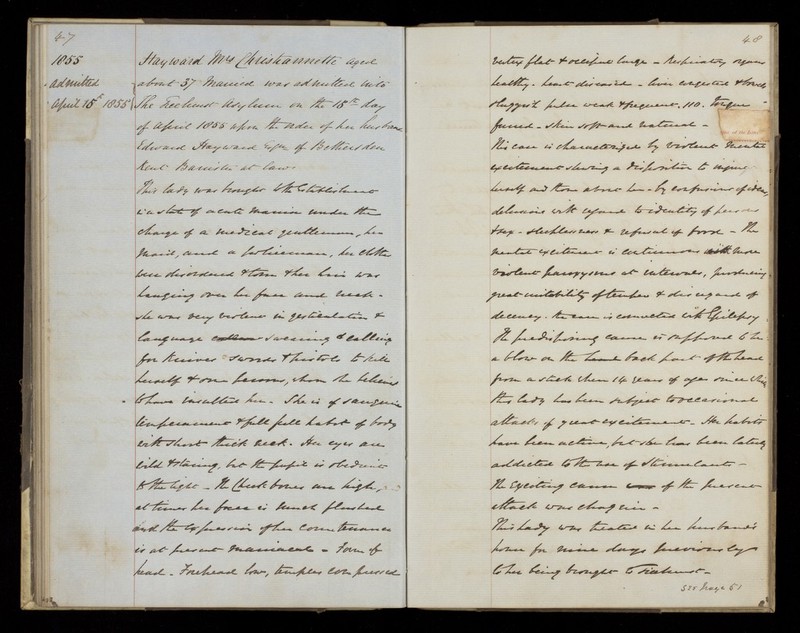 47
1855
admitted
April 18th 1855
Hayward Mrs Christiannette aged
about 37 Married was admitted into
the Ticehurst Asylum on the 18th day
of April 1855 upon the order of her husband
Edward Hayward Esqre of Bethersden
Kent Barrister at law.
This lady was brought to the Establishment
in a state of acute mania under the
charge of a medical gentleman, her
maid, and a policeman, her clothes
were disordered & torn & her hair was
hanging over her face and neck -
she was very violent in gesticulation &
language swearing & calling
for knives swords & pistols to kill
herself & some persons, whom she believes
to have insulted her. She is of sanguine
temperament & full habit of body
with short thick neck. Her eyes are
wild & staring, but the pupil is obedient
to the light - The Cheek bones are high,
at times her face is much flushed
and the expression of her countenance
is at present maniacal - Form of
head - Forehead low, temples compressed
48
vertex flat & occiput large - Respiratory organs
healthy - heart diseased - liver congested & bowels
sluggish pulse weak & frequent. 110. Tongue
furred - skin soft and natural -
This case is characterized by violent mental
excitement shewing a disposition to injure
herself and those about her - by confusion of ideas,
delusions with regard to identity of persons
& sex - sleeplessness & refusal of food - The
mental excitement is continuous with more
violent paroxysms at intervals, producing
great irritability of temper & disregard of
decency. the case is connected with Epilepsy
The predisposing cause is supposed to be
a blow on the back part of the head
from a stick when 14 years of age since which
this lady has been subject to occasional
attacks of great excitement. Her habits
have been active, but she has been lately
addicted to the use of Stimulants -
The Exciting cause of the present
attack was chagrin -
This Lady was treated in her husband's
house for nine days previously
to her being brought to Ticehurst -
See Page 51